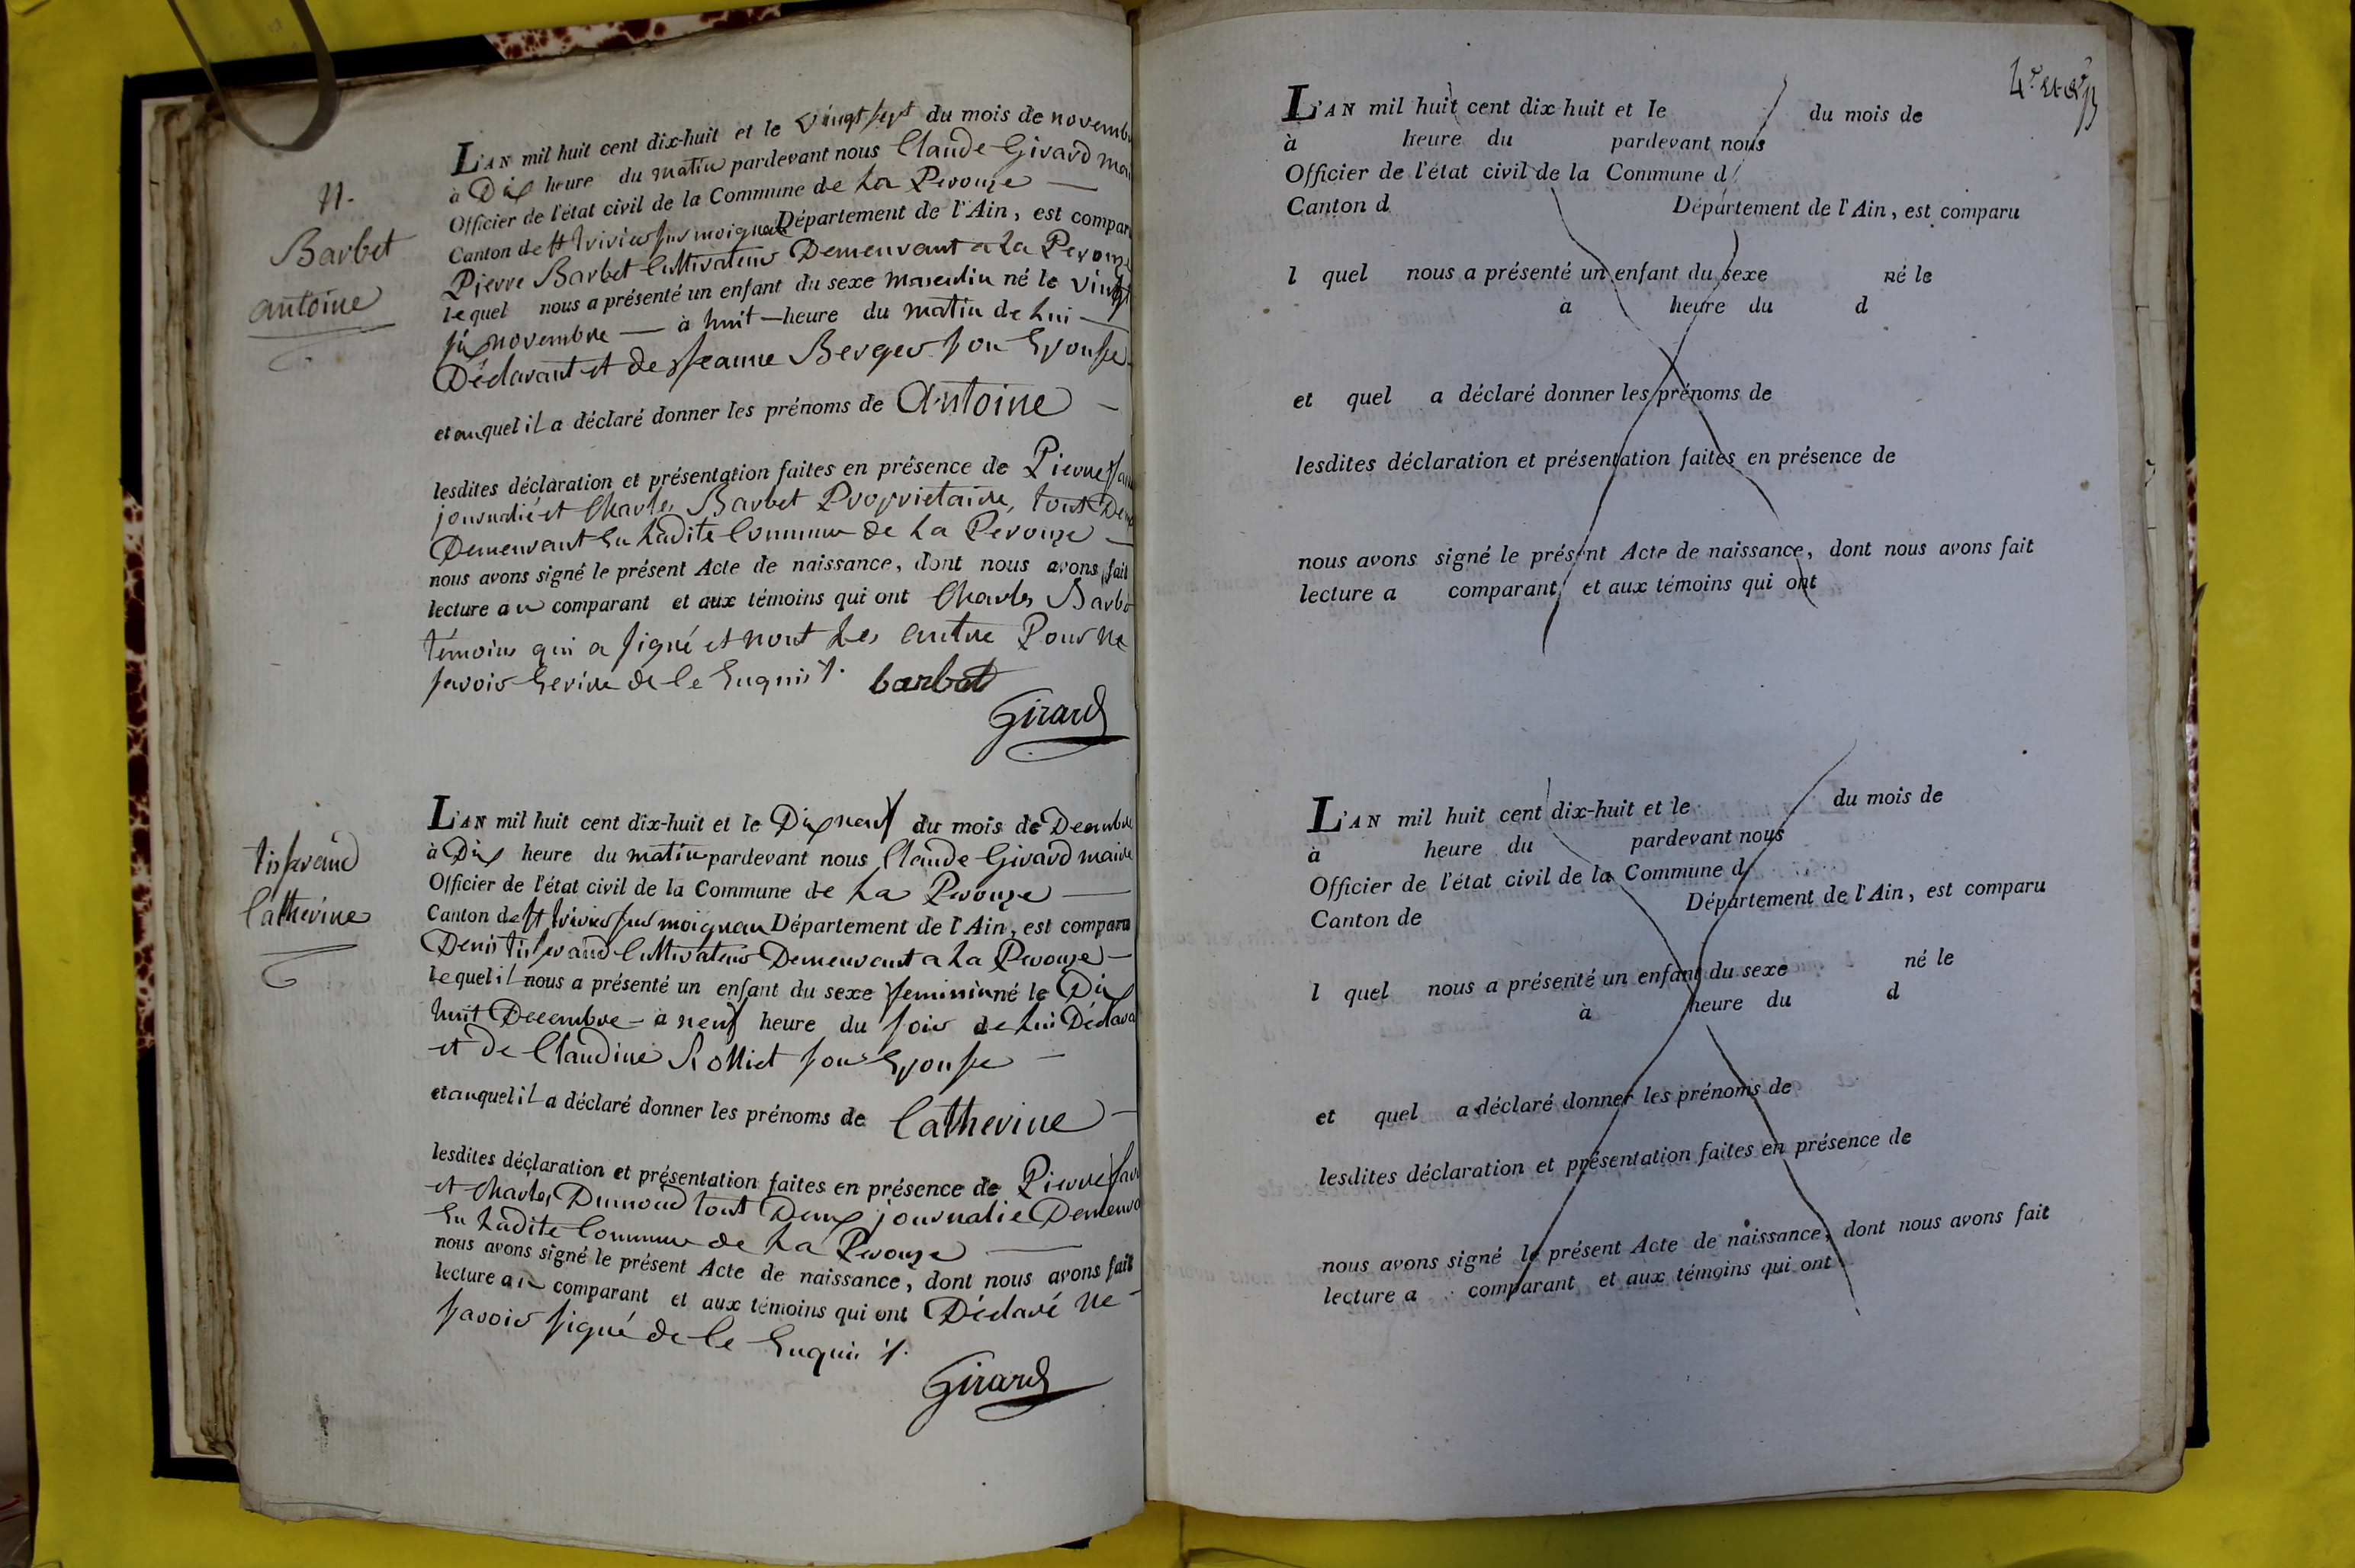 N.
Barbet
antoine
L'AN mil huit cent dix-huit et le vingt sept du mois de novembre
à Dix heure du matin pardevant nous Claude Girard mai
Officier de l'état civil de la Commune de La Perouze
Canton de St trivier sur moignan Département de l'Ain, est comparu
Pierre Barbet Cultivateur Demeurant a La Perouze
lequel nous a présenté un enfant du sexe masculin né le vingt
six novembre à huit heure du matin de lui
Déclarant et de Jeanne Berger son Epouse
et auquel il a déclaré donner les prénoms de Antoine
lesdites déclaration et présentation faites en présence de Pierre
journalié et Charles Barbet Proprietaire, tout De
Demeurant En Ladite Commune de La Perouze
nous avons signé le présent Acte de naissance, dont nous avons fait
lecture au comparant et aux témoins qui ont Charles Barbe
témoins qui a signé et nont Les autre Pour ne
savoir Ecrire de Ce Enquis
barbet
Girard
tisserand
Catherine
L'AN mil huit cent dix-huit et le Dix neuf du mois de Decembre
à Dix heure du matin pardevant nous Claude Girard maire
Officier de l'état civil de la Commune de La Perouze
Canton de St trivier sur moignan Département de l'Ain, est comparu
Denis tisserand Cultivateur Demeurant a La Perouze
lequel il nous a présenté un enfant du sexe feminin né le Dix
huit Decembre à neuf heure du soir de lui Déclara
et de Claudine Rolliet son Epouse
et auquel il a déclaré donner les prénoms de Catherine
lesdites déclaration et présentation faites en présence de Pierre
et Charles Dumond tout Deux journalie Demeura
En Ladite Commune de La Perouze
nous avons signé le présent Acte de naissance, dont nous avons fait
lecture au comparant et aux témoins qui ont Déclaré ne
savoir signé de Ce Enquis
Girard
L'AN mil huit cent dix-huit et le du mois de
à heure du pardevant nous
Officier de l'état civil de la Commune d
Canton d Département de l'Ain, est comparu
l quel nous a présenté un enfant du sexe né le
à heure du d
et quel a déclaré donner les prénoms de
lesdites déclaration et présentation faites en présence de
nous avons signé le présent Acte de naissance, dont nous avons fait
lecture a comparant et aux témoins qui ont
L'AN mil huit cent dix-huit et le du mois de
à heure du pardevant nous
Officier de l'état civil de la Commune d
Canton de Département de l'Ain, est comparu
l quel nous a présenté un enfant du sexe né le
à heure du d
et quel a déclaré donner les prénoms de
lesdites déclaration et présentation faites en présence de
nous avons signé le présent Acte de naissance, dont nous avons fait
lecture a comparant et aux témoins qui ont